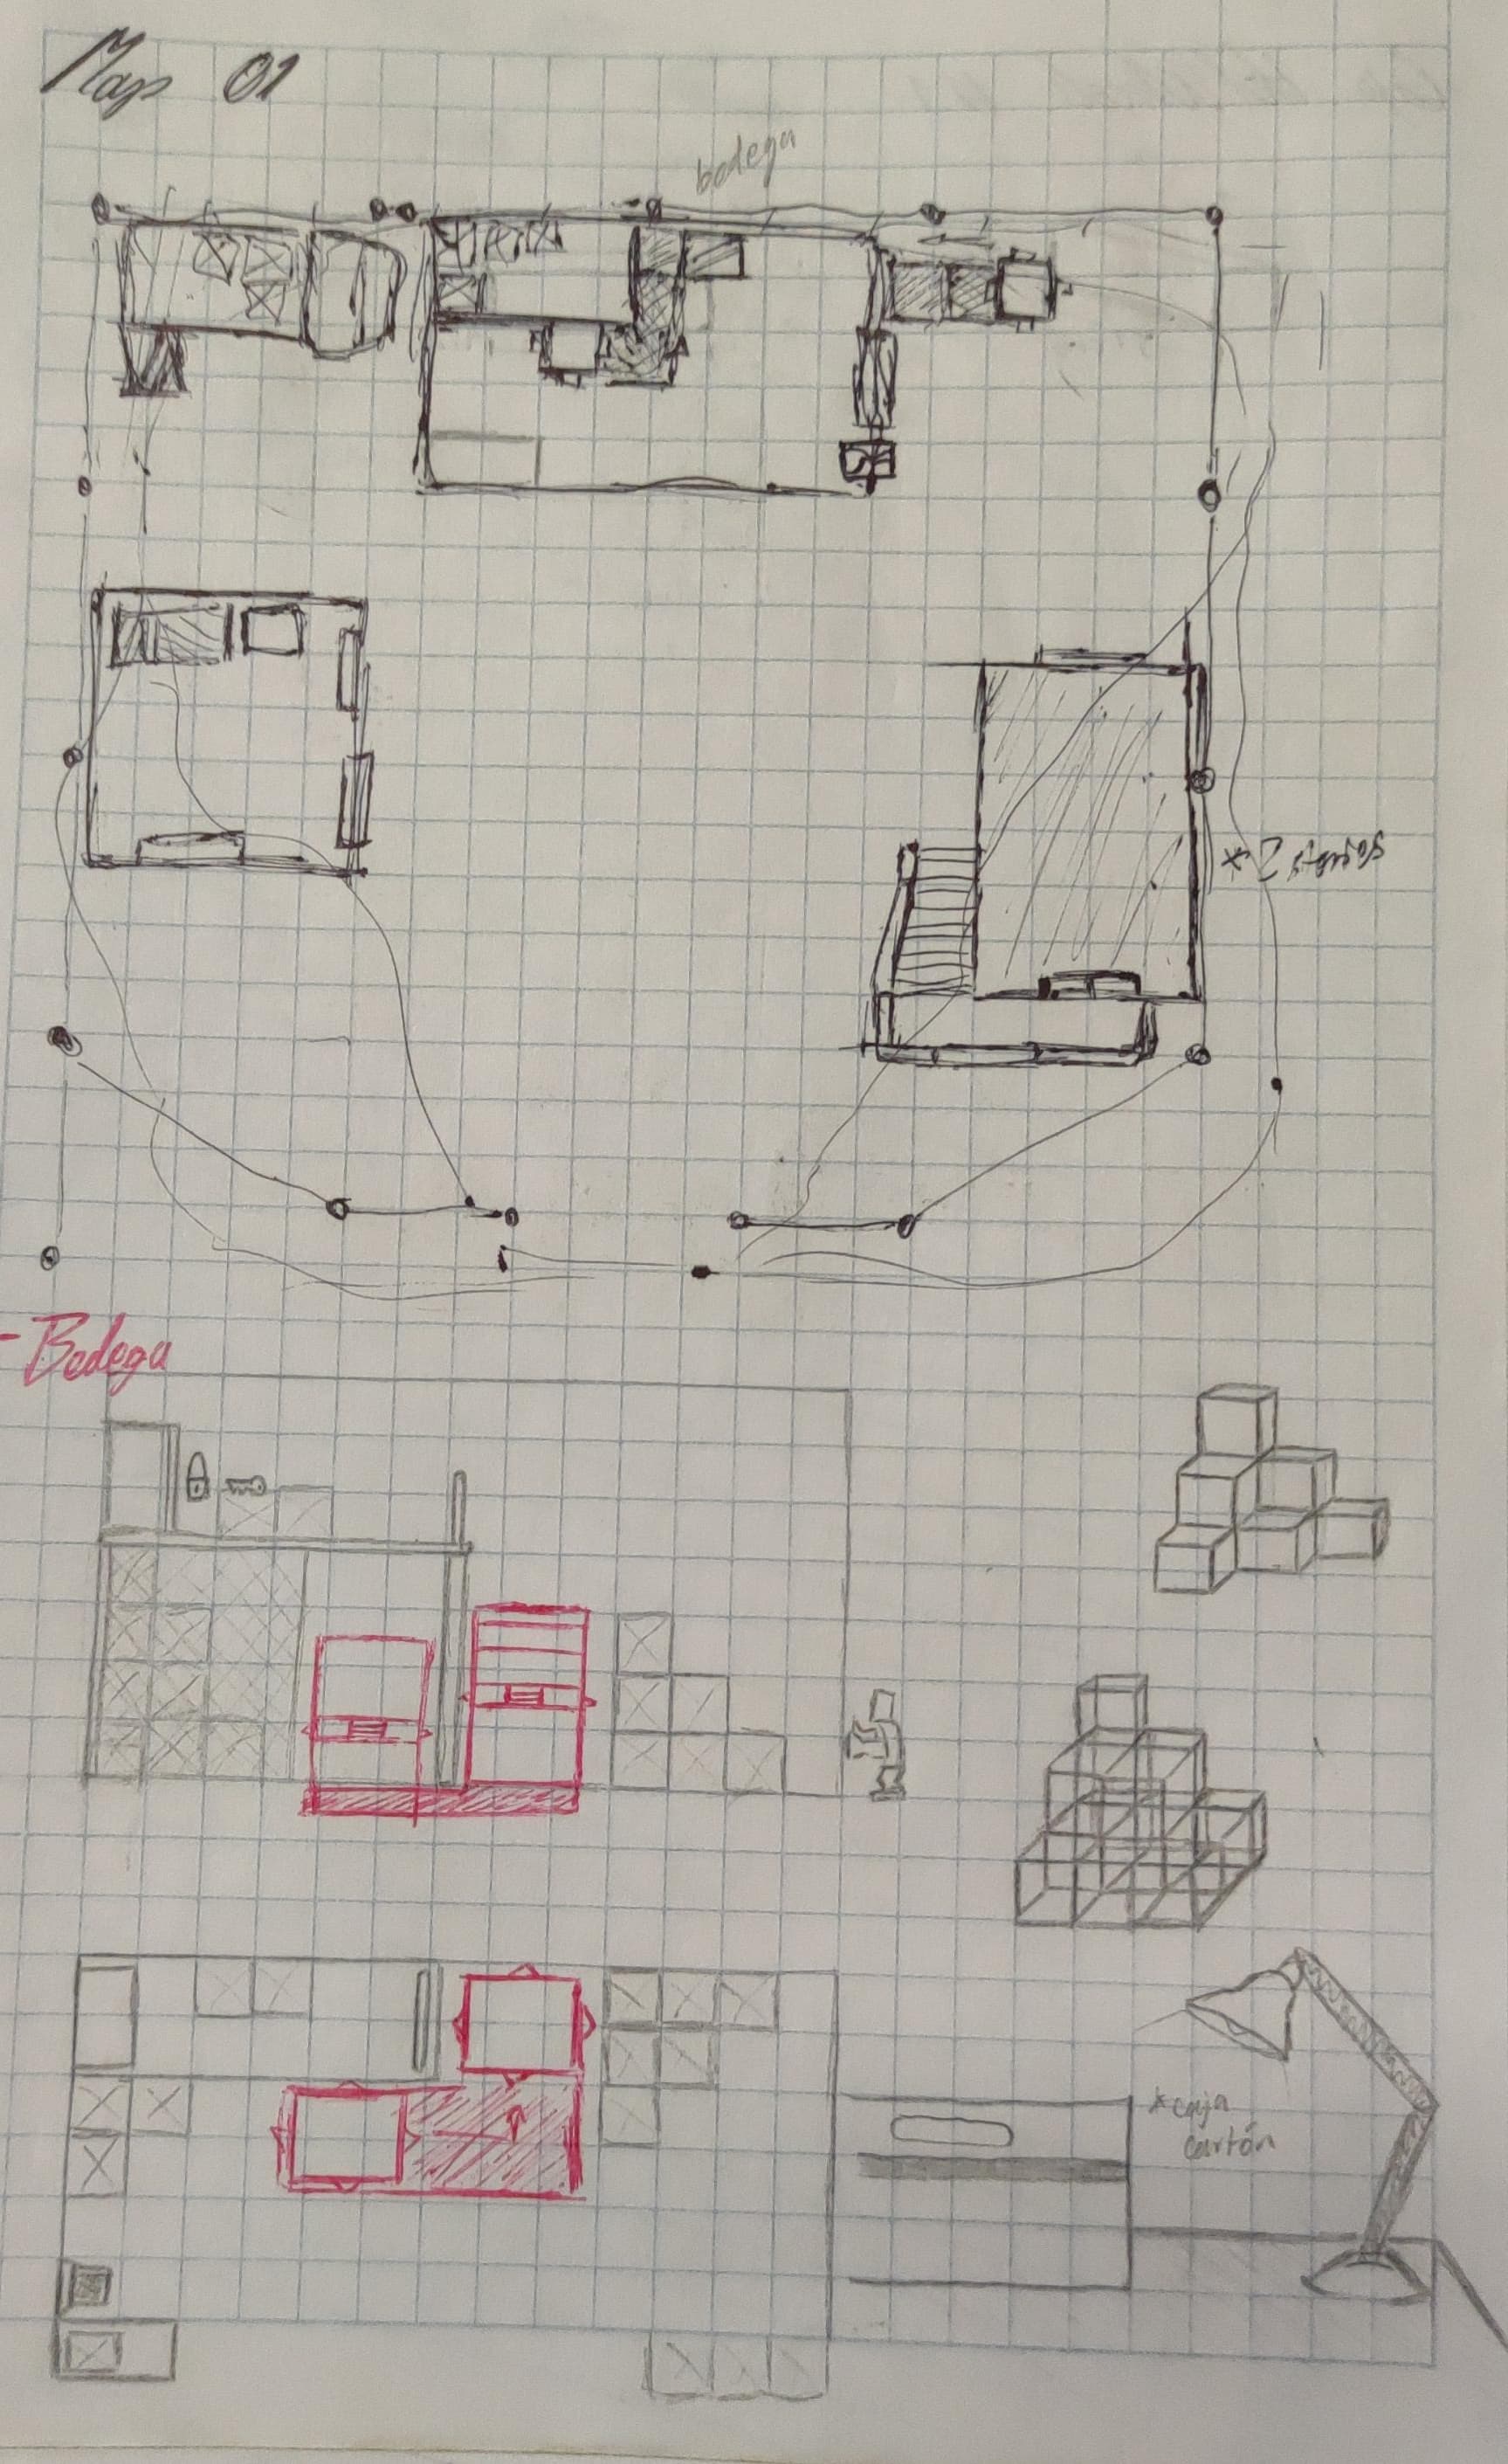 Map 01
bodega
* 2 stories
- Bodega
* caja
cartón